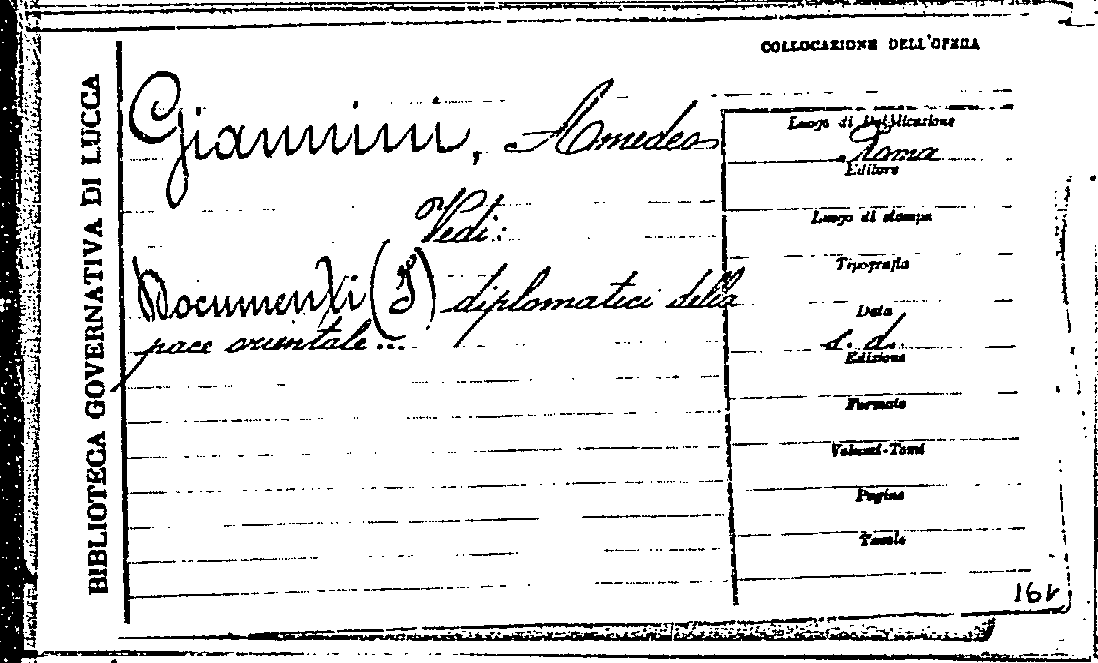 BIBLIOTECA GOVERNATIVA DI LUCCA
COLLOCAZIONE DELL'OPERA
Giannini, Amedeo
Vedi:
Documenti (I) diplomatici della
pace orientale...
Luogo di Pubblicazione
Roma
Editore
Luogo di stampa
Tipografia
Data
s. d.
Edizione
Formato
Volumi-Tomi
Pagine
Tavole